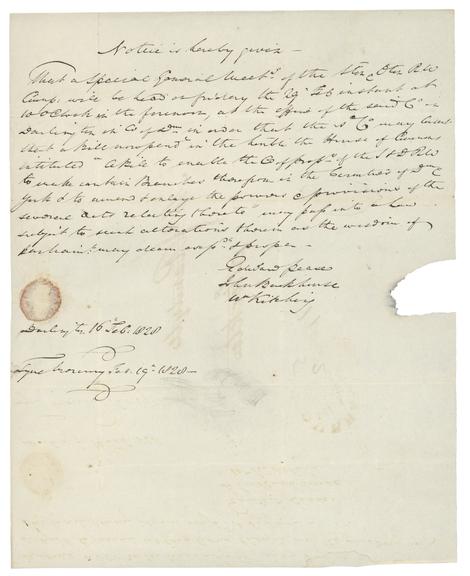 Notice is hereby given —
That a Special General Meetg of the Stocn & Dton RW
Compy will be head on friday the 29 Feb instant at
10 OClock in the forenoon, at the office of the said Co in
Darlington in Co of Dm in order that the sd Co may
that a Bill now pend in the honble the House of Comons
intituled "A Bill to enable the Co of propr of the S & D RW
to make certain Branches therefrom in the Counties of Dm
York & to amend & enlarge the powers & provisions of the
several Acts relating thereto" may pass into a Law
subject to such alterations therein as the wisdom of
parliamt may deem & proper —
Edward Pease
John Backhouse
W Kitching
Darlingtn 16 Feb: 1828
Tyne Mercury Feb. 19. 1828 —